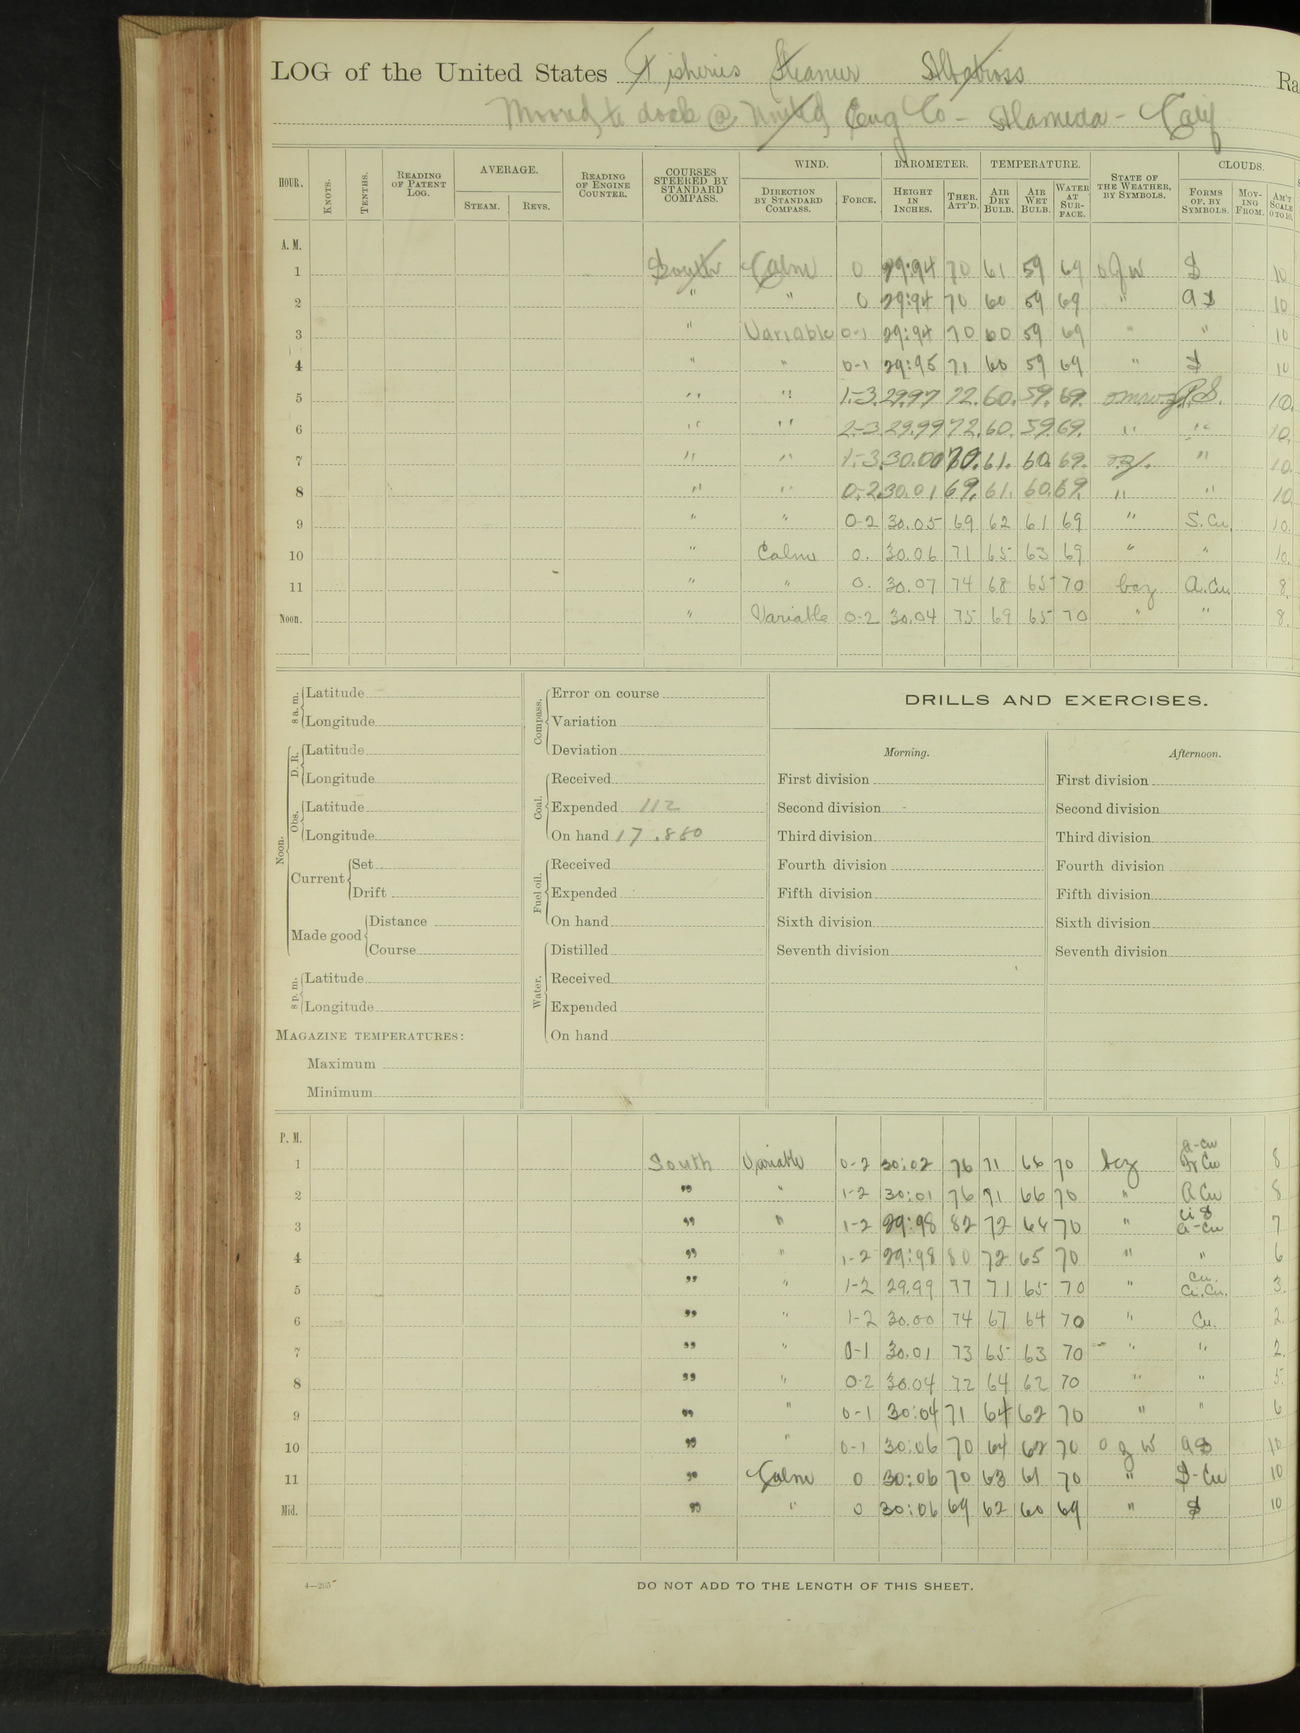 LOG of the United States Fisheries Steamer Albatross Ra
Moored to dock @ United Eng Co - Alameda - Calif
HOUR. KNOTS. TENTHS. READING OF PATENT LOG. AVERAGE. STEAM. REVS. READING OF ENGINE COUNTER. COURSES STEERED BY STANDARD COMPASS. WIND. DIRECTION BY STANDARD COMPASS. FORCE. BAROMETER. HEIGHT IN INCHES. THER. ATT'D. TEMPERATURE. AIR DRY BULB. AIR WET BULB. WATER AT SURFACE. STATE OF THE WEATHER, BY SYMBOLS. CLOUDS. FORMS OF, BY SYMBOLS. MOVING FROM. AM'T SCALE 0 TO 10.
A. M.
1 South Calm 0 29:94 70 61 59 69 o g w S 10
2 " " 0 29:94 70 60 59 69 " a S 10
3 " Variable 0-1 29:94 70 60 59 69 " " 10
4 " " 0-1 29:95 71 60 59 69 " S 10
5 " " 1-3. 29.97 72. 60. 59. 69. S. 10.
6 " " 2-3 29.99 72. 60. 59. 69. " " 10.
7 " " 1-3. 30.00 70. 61. 60. 69. " 10.
8 " " 0-2. 30.01 69. 61. 60. 69. " " 10.
9 " " 0-2 30.05 69 62 61 69 " S. Cu. 10.
10 " Calm 0. 30.06 71 65 63 69 " " 10.
11 " " 0. 30.07 74 68 65 70 bcz A. Cu. 8.
Noon. " Variable 0-2 30.04 75 69 65 70 " " 8.
8 a. m. Latitude
Longitude
Noon. D. R. Latitude
Longitude
Obs. Latitude
Longitude
Current Set
Drift
Made good Distance
Course
8 p. m. Latitude
Longitude
MAGAZINE TEMPERATURES:
Maximum
Minimum
Compass. Error on course
Variation
Deviation
Coal. Received
Expended 112
On hand 17.880
Fuel oil. Received
Expended
On hand
Water. Distilled
Received
Expended
On hand
DRILLS AND EXERCISES.
Morning. Afternoon.
First division First division
Second division Second division
Third division Third division
Fourth division Fourth division
Fifth division Fifth division
Sixth division Sixth division
Seventh division Seventh division
P. M.
1 South Variable 0-2 30:02 76 71 66 70 bcz a-cu Cu 8
2 " " 1-2 30:01 76 71 66 70 " A Cu 8
3 " " 1-2 29:98 82 72 64 70 " ci S a-cu 7
4 " " 1-2 29:98 80 72 65 70 " " 6
5 " " 1-2 29.99 77 71 65 70 " Cu. Ci. Cu. 3.
6 " " 1-2 30.00 74 67 64 70 " Cu. 2.
7 " " 0-1 30.01 73 65 63 70 " " 2.
8 " " 0-2 30.04 72 64 62 70 " " 5.
9 " " 0-1 30:04 71 64 62 70 " " 6
10 " " 0-1 30:06 70 64 62 70 o g w a S 10
11 " Calm 0 30:06 70 63 61 70 " S-Cu 10
Mid. " " 0 30:06 69 62 60 69 " S 10
DO NOT ADD TO THE LENGTH OF THIS SHEET.